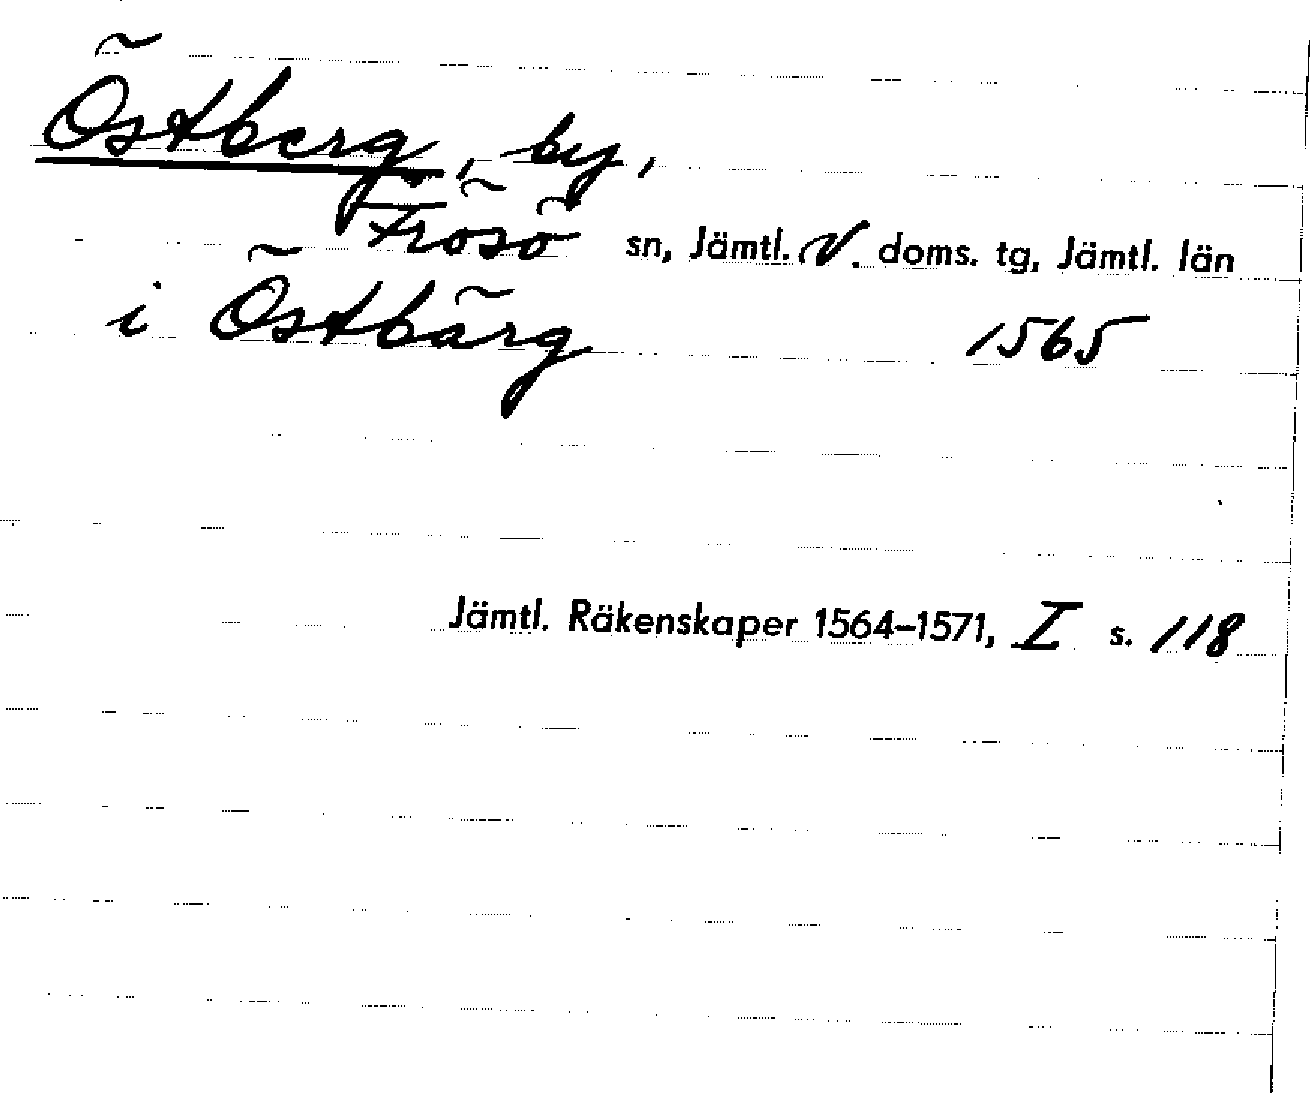 Östberg, by,
Frösö sn, Jämtl. V. doms. tg, Jämtl. län
i Östbärg 1565
Jämtl. Räkenskaper 1564–1571, I s. 118